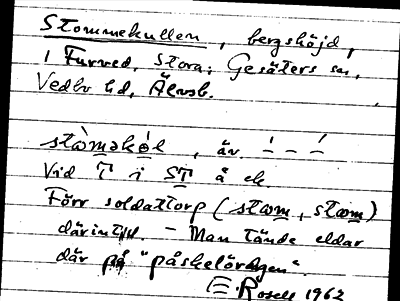 Stommekullen, bergshöjd,
i Furved, Stora; Gesäters sn,
Vedbo hd, Älvsb.
stòməkél, äv.
Vid T i ST å ek.
Förr soldattorp (stom, stom)
därintill. – Man tände eldar
där på "påskelördagen".
E. Rosell 1962